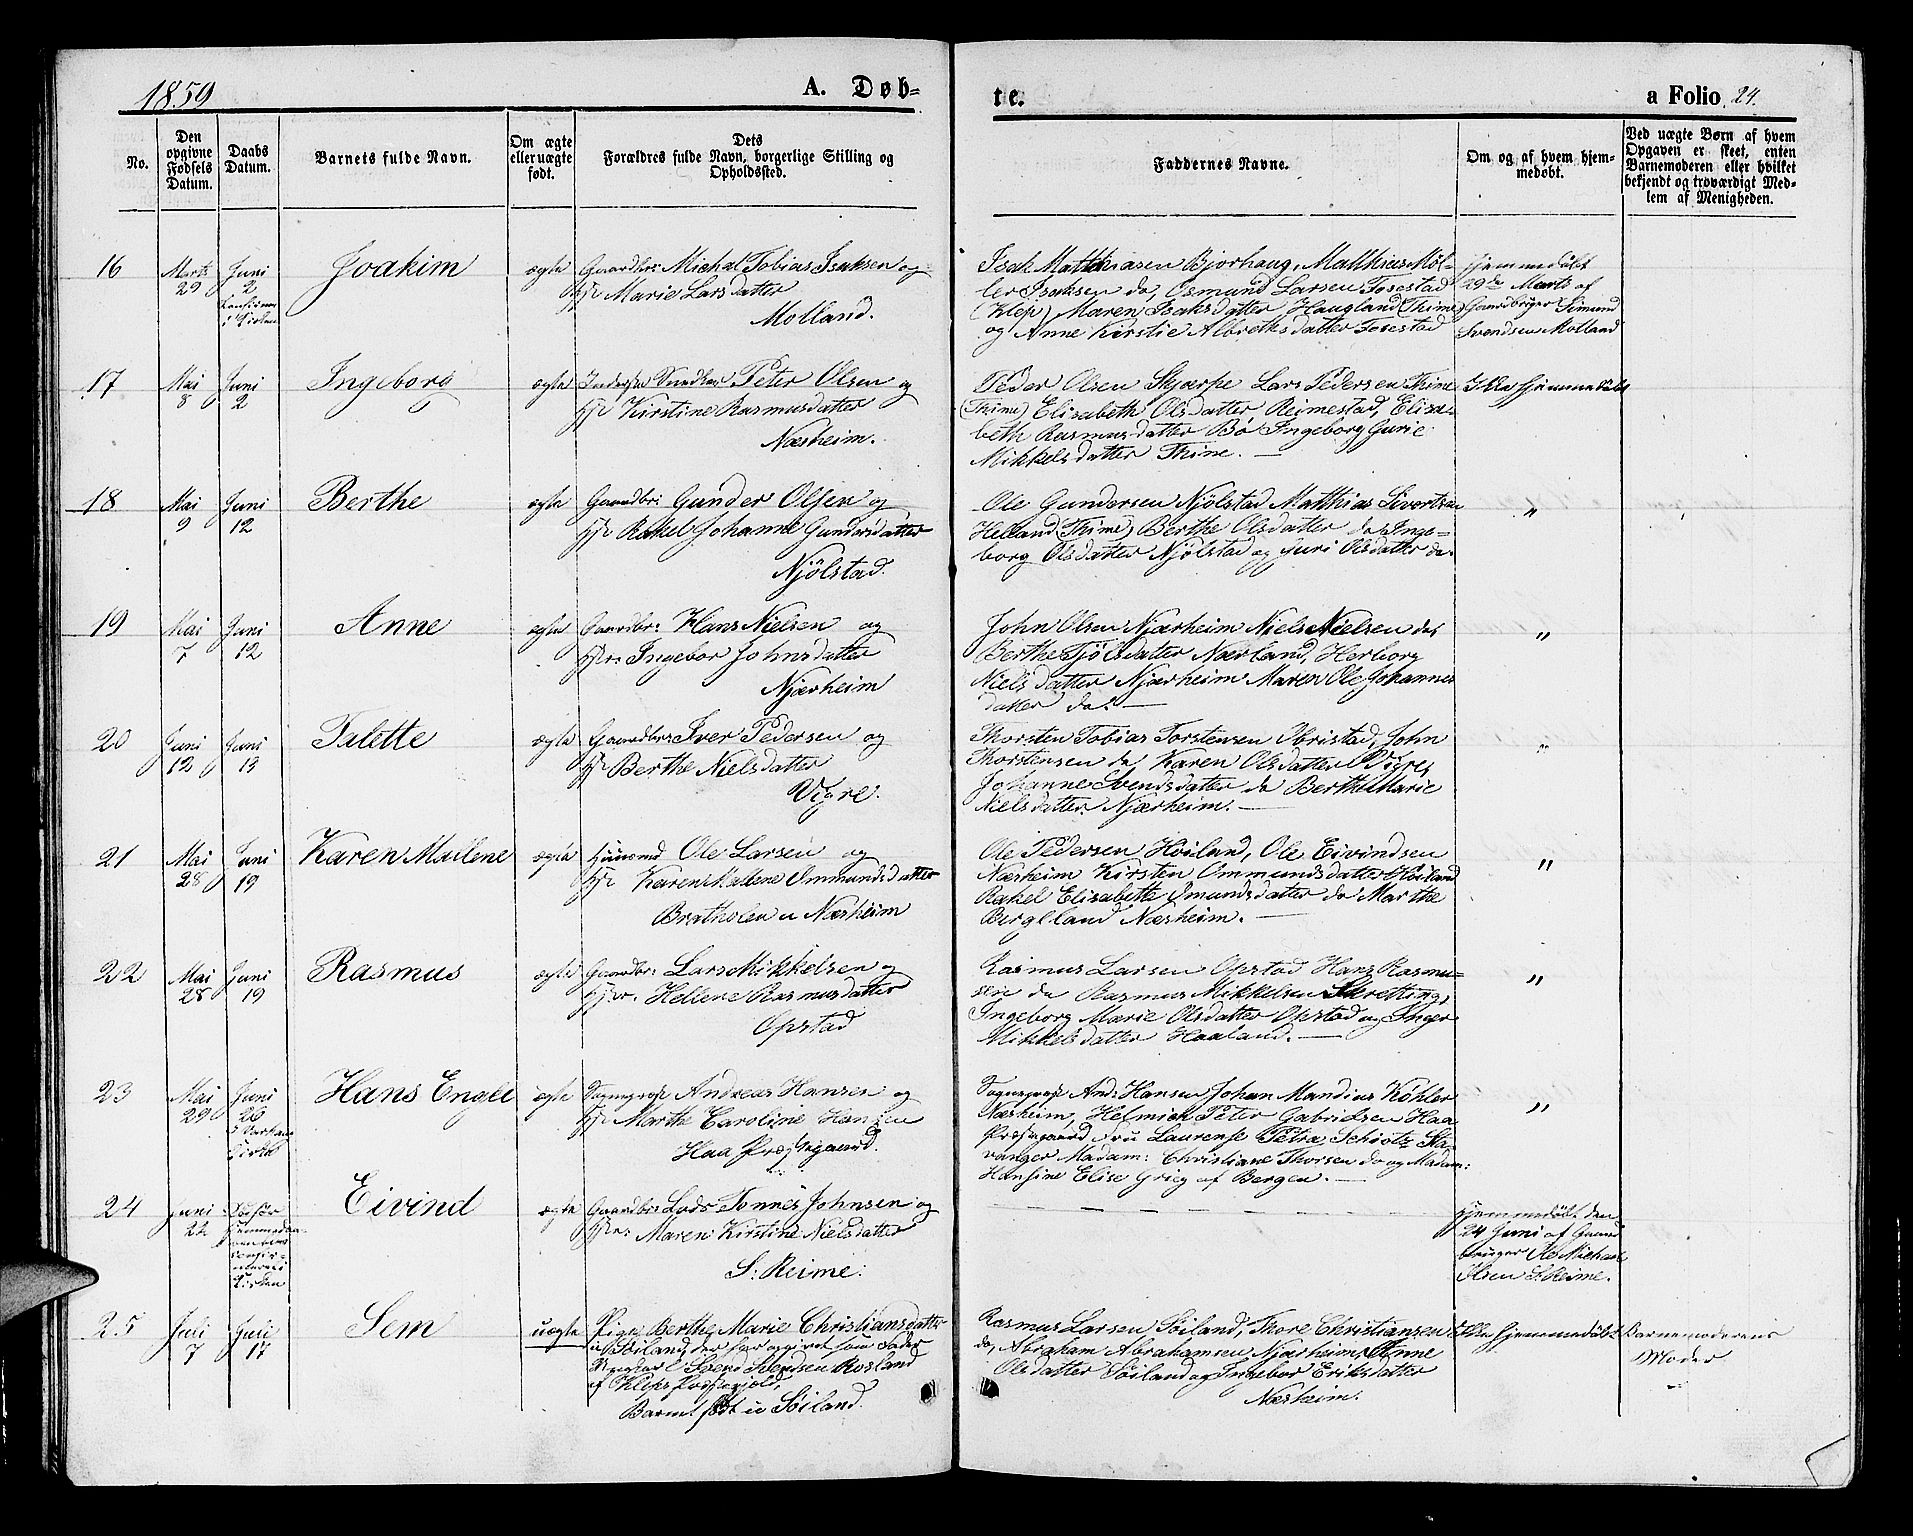 1859
A. Døb-
te.
a Folio 24.
No.
Den opgivne Fødsels Datum.
Daabs Datum.
Barnets fulde Navn.
Om ægte eller uægte født.
Dets Forældres fulde Navn, borgerlige Stilling og Opholdssted.
Faddernes Navne.
Om og af hvem hjemmedøbt.
Ved uægte Børn af hvem Opgaven er skeet, enten Barnemoderen eller hvilket bekjendt og troværdigt Medlem af Menigheden.
16
Marts 29
Juni 2
i Kirken
Joakim
ægte
Gaardbr: Michal Tobias Isaksen og
Hjr Marie Larsdatter
Molland.
Isak Matthiasen Bjorhaug, Matthias Møl-
ler Isaksen do, Osmund Larsen Tosestad
(Klep) Maren Isaksdatter Haugland (Thime)
og Anne Kirstie Albrethsdatter Tosestad
Hjemmedøbt
29de Marts af
Gaardbruger Simund
Svendsen Molland
17
Mai 8
Juni 2
Ingeborg
ægte
Peter Olsen og
Hjr Kirstine Rasmusdatter
Nærheim.
Peder Olsen Skjærpe Lars Pedersen Thime
(Thime) Elisabeth Olsdatter Reimestad, Elisa-
beth Rasmusdatter Bø Ingeborg Gurie
Mikkelsdatter Thime. —
Ikke hjemmedøbt
18
Mai 9
Juni 12
Berthe
ægte
Gaardbr: Gunder Olsen og
Hjr Rakel Johanne Gundersdatter
Njölstad.
Ole Gundersen Njölstad Matthias Sivertsen
Helland (Thime) Berthe Olsdatter do Inge-
borg Olsdatter Njölstad og Guri Olsdatter do.
"
19
Mai 7
Juni 12
Anne
ægte
Gaardbr: Hans Nielsen og
Hjr: Ingebor Johnsdatter
Njærheim
John Olsen Njærheim Niels Nielsen do,
Berthe Tjölsdatter Nærland, Herborg
Nielsdatter Njærheim Maren Ole Johannes
datter do. —
"
20
Juni 12
Juni 13
Talette
ægte
Gaardbr: Iver Pedersen og
Hjr Berthe Nielsdatter
Vigre.
Thorsten Tobias Torstensen Obristad, John
Thorstensen do Karen Olsdatter Vigre,
Johanne Svendsdatter do Berthe Marie
Nielsdatter Njærheim. —
"
21
Mai 28
Juni 19
Karen Malene
ægte
Huusmd Ole Larsen og
Hjr Karen Malene Ommundsdatter
Bratholen u Nærheim
Ole Pedersen Höiland, Ole Eivindsen
Nærheim Kirsten Ommundsdatter Höiland
Rakel Elisabette Omundsdatter do Marthe
Berglland Nærheim. —
"
22
Mai 28
Juni 19
Rasmus
ægte
Gaardbr: Lars Mikkelsen og
Hjr: Hellene Rasmusdatter
Opstad
Rasmus Larsen Opstad Hans Rasmu-
sen do Rasmus Mikkelsen Skretting,
Ingeborg Marie Olsdatter Opstad og Inger
Mikkelsdatter Haaland. —
"
23
Mai 29
Juni 26
i Varhaug Kirke
Hans Engel
ægte
Sogneprest Andreas Hansen og
Hjr Marthe Caroline Hansen
Haa Præstegaard.
Sogneprest And: Hansen Johan Mandius Köhler
Nærheim, Helmich Peter Gabrielsen Haa
Præstegaard Fru Laurense Petra Schiötz Sta-
vanger Madam: Christiane Thorsen do og Madam:
Hansine Elise Grieg af Bergen. —
"
24
Juni 22
Eivind
ægte
Gaardbr: Tönnes Johnsen og
Hjr: Maren Kirstine Nielsdatter
S: Reime.
Hjemmedöbt den
24 Juni af Gaard
bruger Ole Michael
Olsen S: Reime.
25
Juli 7
Juli 17
Sem
uægte
Pige Berthe Marie Christiansdatter
Söiland der har opgivet som Fader
Ungkarl Svend Svendsen Rosland
af Kleps Præstegjeld,
Barnet født u Söiland.
Rasmus Larsen Söiland, Thore Christiansen
do, Abraham Abrahamsen Njærheim, Anne
Olsdatter Söiland og Ingebor Eriksdatter
Nærheim.
Ikke hjemmedöbt
Barnemoderens
Moder